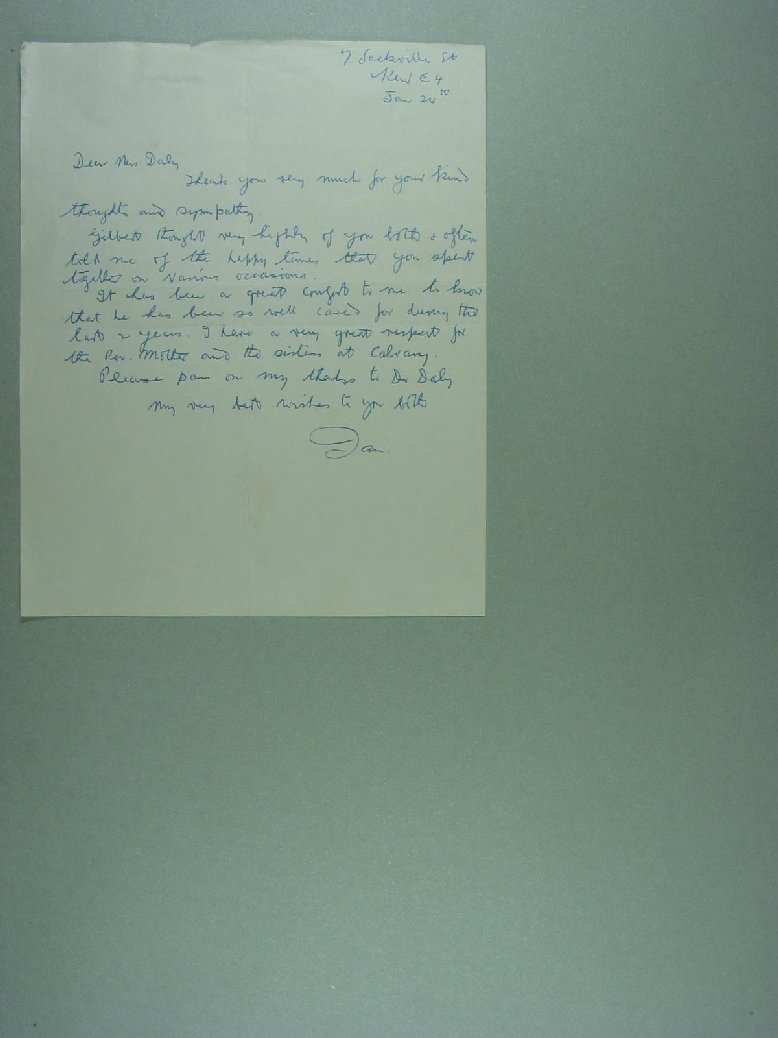 7 Sackville St
Kew E 4
Jan 24th
Dear Mrs Daly
Thank you very much for your kind
thoughts and sympathy.
Gilbert thought very highly of you both & often
told me of the happy times that you spent
together on various occasions.
It has been a great comfort to me to know
that he has been so well cared for during the
last 2 years. I have a very great respect for
the Rev. Mother and the sisters at Calvary.
Please pass on my thanks to Dr Daly
My very best wishes to you both